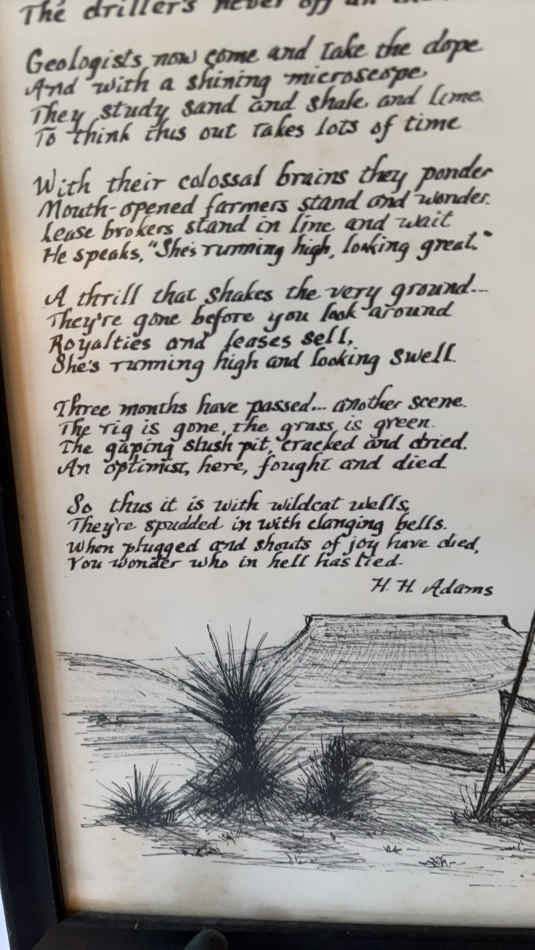 The driller's never off an
Geologists now come and take the dope
And with a shining microscope,
They study sand and shale and lime.
To think this out takes lots of time
With their colossal brains they ponder
Mouth-opened farmers stand and wonder.
Lease brokers stand in line and wait
He speaks, "She's running high, looking great."
A thrill that shakes the very ground...
They're gone before you look around
Royalties and leases sell,
She's running high and looking swell.
Three months have passed... another scene.
The rig is gone, the grass is green.
The gaping slush pit, cracked and dried.
An optimist, here, fought and died.
So thus it is with wildcat wells,
They're spudded in with clanging bells.
When plugged and shouts of joy have died,
You wonder who in hell has lied.
H. H. Adams